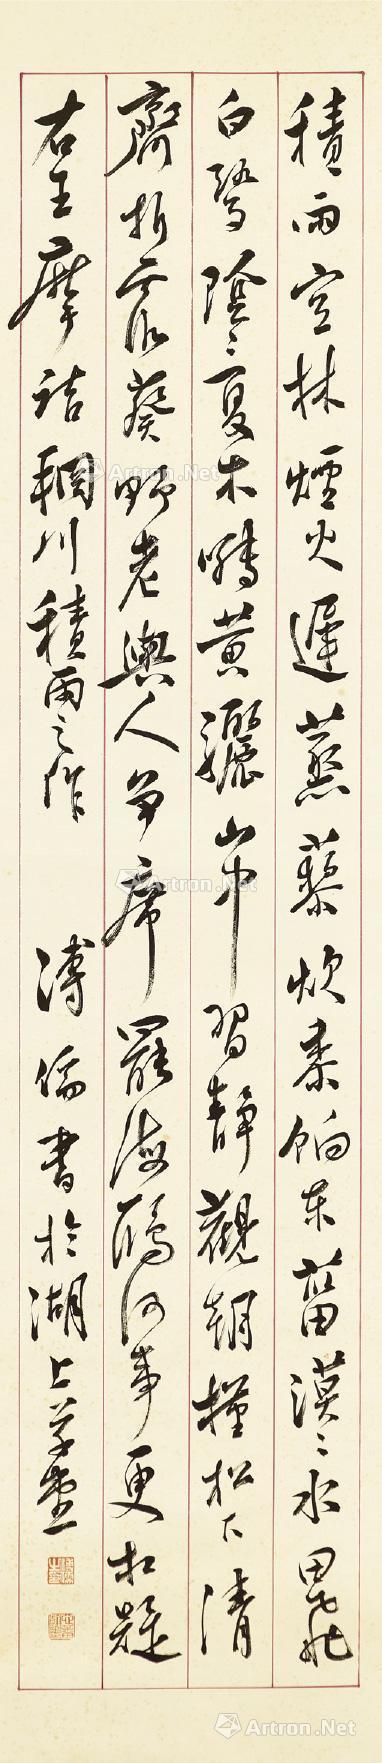 積雨空林煙火遲蒸藜炊黍餉東菑漠〻水田飛
白鷺陰〻夏木囀黃鸝山中習靜觀朝槿松下清
齋折露葵野老與人爭席罷海鷗何事更相疑
右王摩詰輞川積雨之作 溥儒書於湖上草堂
Artron.Net
Artron.Net
Artron.Net
Artron.Net